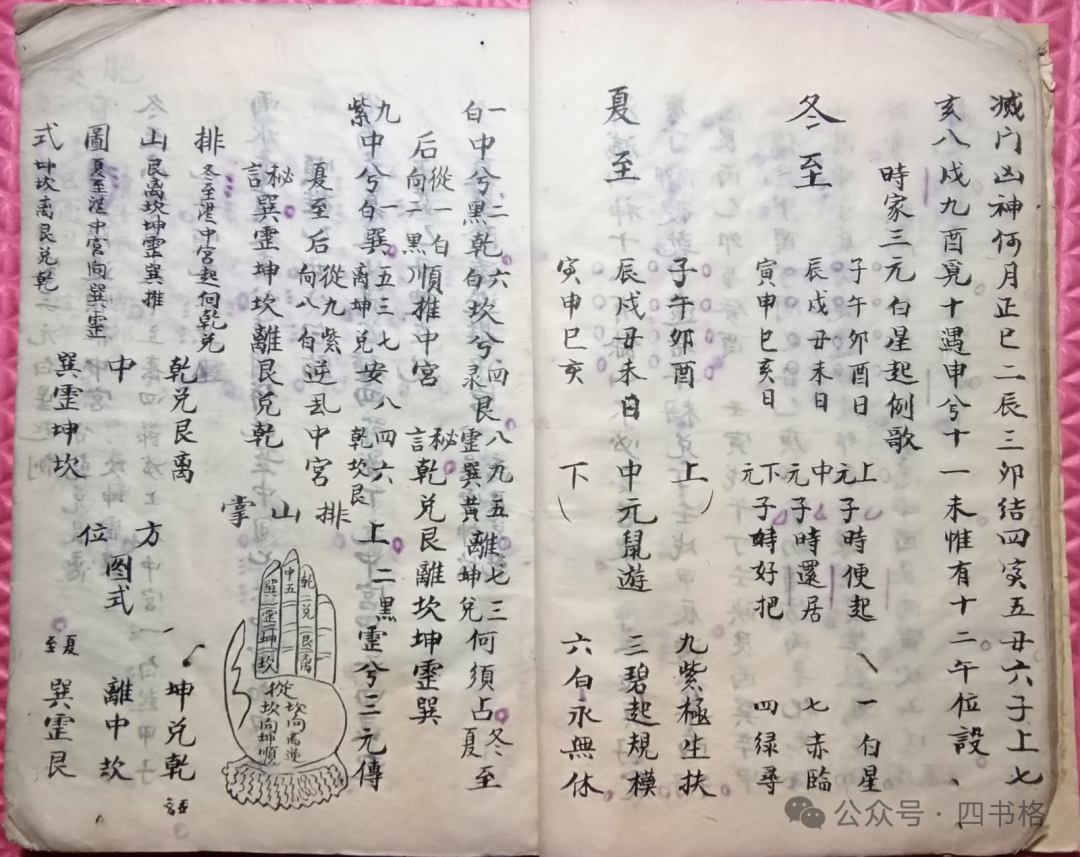 滅门凶神何月正巳二辰三卯结四寅五丑六子上七
亥八戌九酉覓十遇申兮十一未惟有十二午位設
時家三元白星起例歌
冬至
子午卯酉日 上元子時便起 一白星
辰戌丑未日 中元子時還居 七赤臨
寅申巳亥日 下元子時好把 四绿尋
夏至
子午卯酉 上 九紫極生扶
辰戌丑未日 中元鼠遊 三碧起規模
寅申巳亥 下 六白永無休
一白中兮黑乾二六白坎兮四艮八九五離七三何須占
冬至后從一白向二黑順推中宮 秘言 乾兑艮離坎坤霊巽
九紫中兮白巽一五三七安八四六上二黑霊兮三元傳
夏至后從九紫向八白逆乱中宮
秘言 巽霊坤坎離艮兑乾
排山掌
乾二兑艮離
中五
巽霊坤坎
從坎向离逆
坎向坤順
排山圖式
冬至從中宮起向乾兑
艮離坎坤霊巽推
夏至從中宮向巽霊
坤坎離艮兑乾
乾兑艮離
中
巽霊坤坎
方位图式
坤兑乾
離中坎
夏至 巽霊艮
公众号·四书格